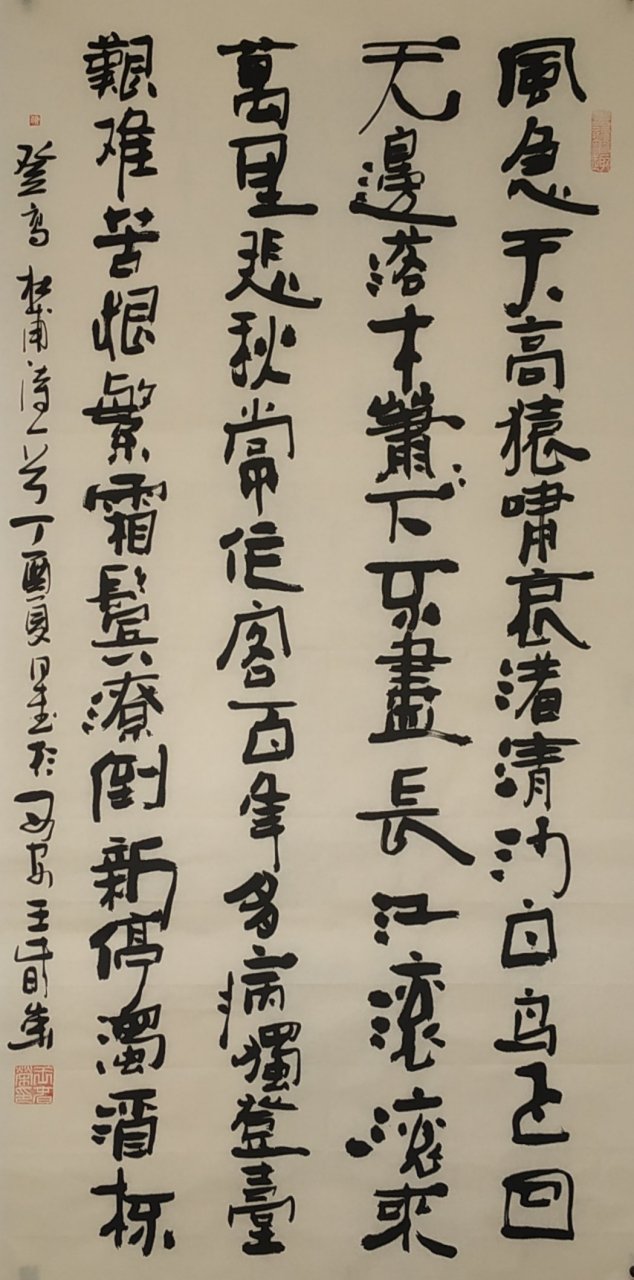 風急天高猿嘯哀渚清沙白鸟飞回
无邊落木蕭〻下不盡長江滚滚来
萬里悲秋常作客百年多病獨登臺
艱难苦恨繁霜鬢潦倒新停濁酒杯
登高 杜甫诗一首丁酉夏日書於西安王